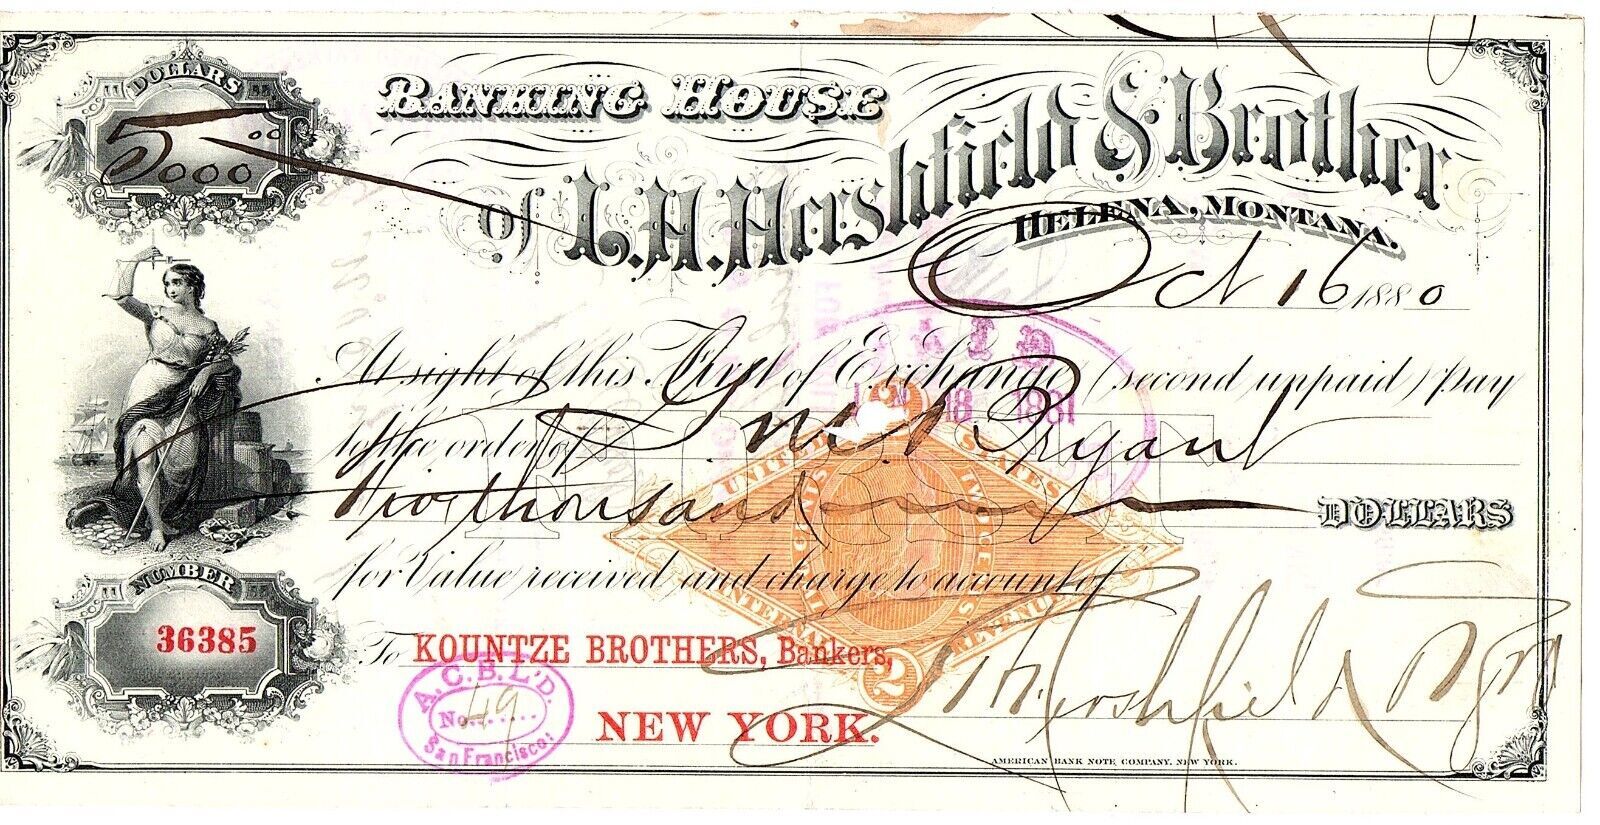 DOLLARS
5000 00
BANKING HOUSE
of L. H. Hershfield & Brother
HELENA, MONTANA.
Oct 16 1880
PAID
18 1881
At sight of this First of Exchange (second unpaid) Pay
to the order of Bryant
Five thousand DOLLARS
FIRST
UNITED STATES
INTERNAL REVENUE
2
2
for Value received and charge to account of
NUMBER
36385
To KOUNTZE BROTHERS, Bankers,
NEW YORK.
A.C.B. L'D.
No. 49
San Francisco:
L H Hershfield & Bro
AMERICAN BANK NOTE COMPANY. NEW YORK.